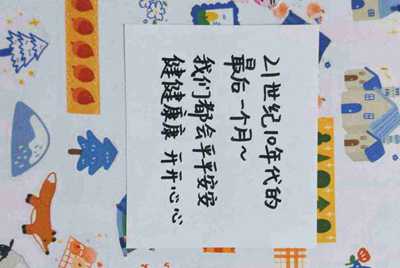 21世纪10年代的
最后一个月~
我们都会平平安安
健健康康 开开心心